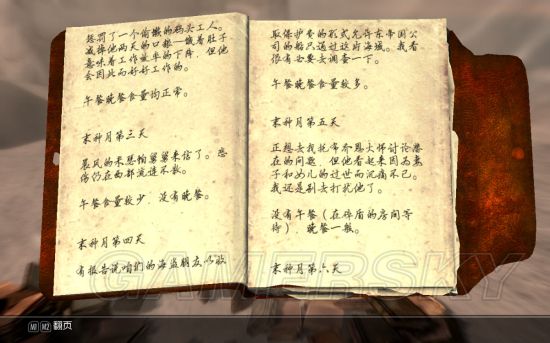 惩罚了一个偷懒的码头工人。
减掉他两天的口粮—饿着肚子
意味着工作效率的下降，但他
会因此而好好工作的。
午餐晚餐食量均正常。
末种月第三天
晨风的米恩帕翼翼来信了。悲
伤仍在西部流连不散。
午餐食量较少，没有晚餐。
末种月第四天
有报告说咱们的海盗朋友以收
取保护费的形式允许东帝国公
司的船只通过这片海域。我看
很有必要去调查一下。
午餐晚餐食量较多。
末种月第五天
正想去找托帝乔恩大师讨论潜
在的问题，但他看起来因为妻
子和女儿的过世而沉痛不已。
我还是别去打扰他了。
没有午餐（在碎盾的房间等
待），晚餐一般。
末种月第六天
GAMERSKY
M1 M2 翻页